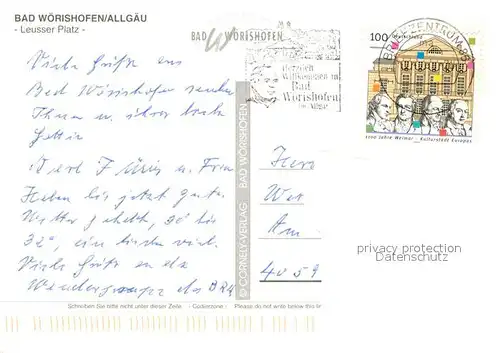 BAD WÖRISHOFEN/ALLGÄU
- Leusser Platz -
BAD WÖRISHOFEN
Viele Grüße aus
Bad Wörishofen senden
Ihnen u. Ihrer lieben
Gattin
u. Frau
Haben bis jetzt gutes
Wetter gehabt, 30° bis
32°, ein bischen viel.
Viele Grüße an die
Wandergruppe des DRK
© CORNELY-VERLAG BAD WÖRISHOFEN
Herzlich
Willkommen in
Bad
Wörishofen
im Allgäu
BRIEFZENTRUM 86
100 Deutschland
1100 Jahre Weimar - Kulturstadt Europas
Herr
Am
4059
privacy protection
Datenschutz
Schreiben Sie bitte nicht unter dieser Zeile - Codierzone - Please do not write below this line